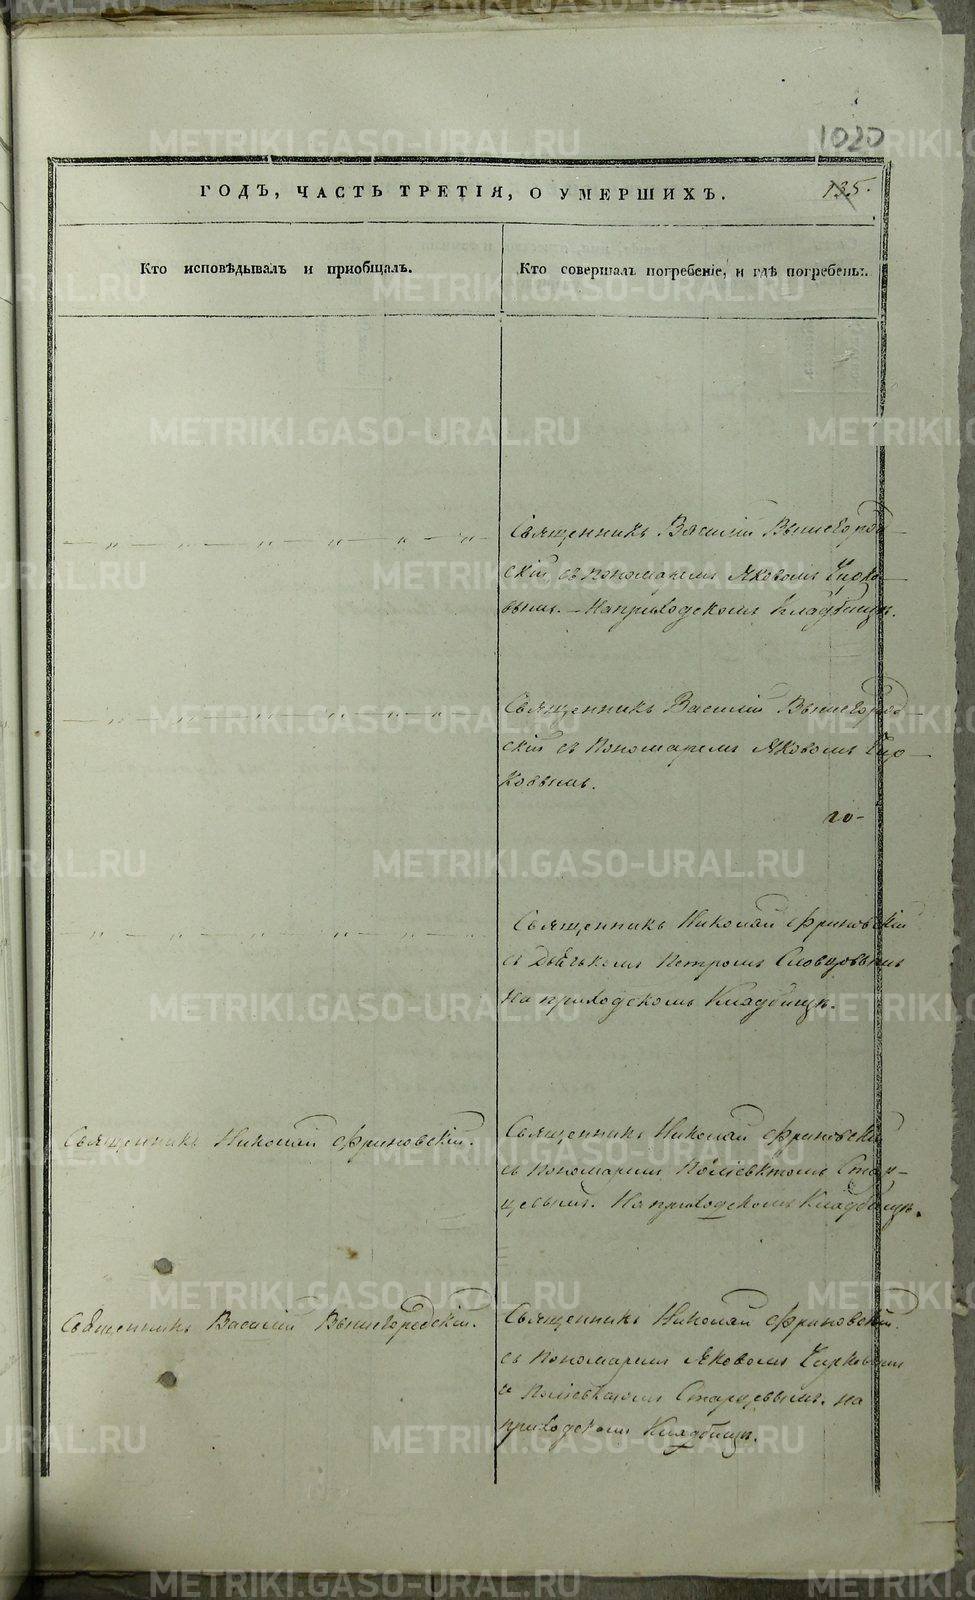 1020
ГОДЪ, ЧАСТЬ ТРЕТІЯ, О УМЕРШИХЪ.
135.
Кто исповѣдывалъ и пріобщалъ.
Кто совершалъ погребеніе, и гдѣ погребены.
Священникъ Василій Вышегород-
скій, съ пономаремъ Яковомъ Чирко-
вымъ. – На приходскомъ кладбищѣ.
Священникъ Василій Вышегород-
скій съ пономаремъ Яковомъ Чир-
ковымъ.
го-
Священникъ Николай Фриновскій
съ дьячкомъ Петромъ Словцовымъ
на приходскомъ кладбищѣ.
Священникъ Николай Фриновскій.
Священникъ Николай Фриновскій
съ пономаремъ Поліевктомъ Стар-
цевымъ. На приходскомъ кладбищѣ.
Священникъ Василій Вышегородскій.
Священникъ Николай Фриновскій.
съ пономарями Яковомъ Чирковымъ
и Поліевктомъ Старцевымъ. на
приходскомъ кладбищѣ.
METRIKI.GASO-URAL.RU